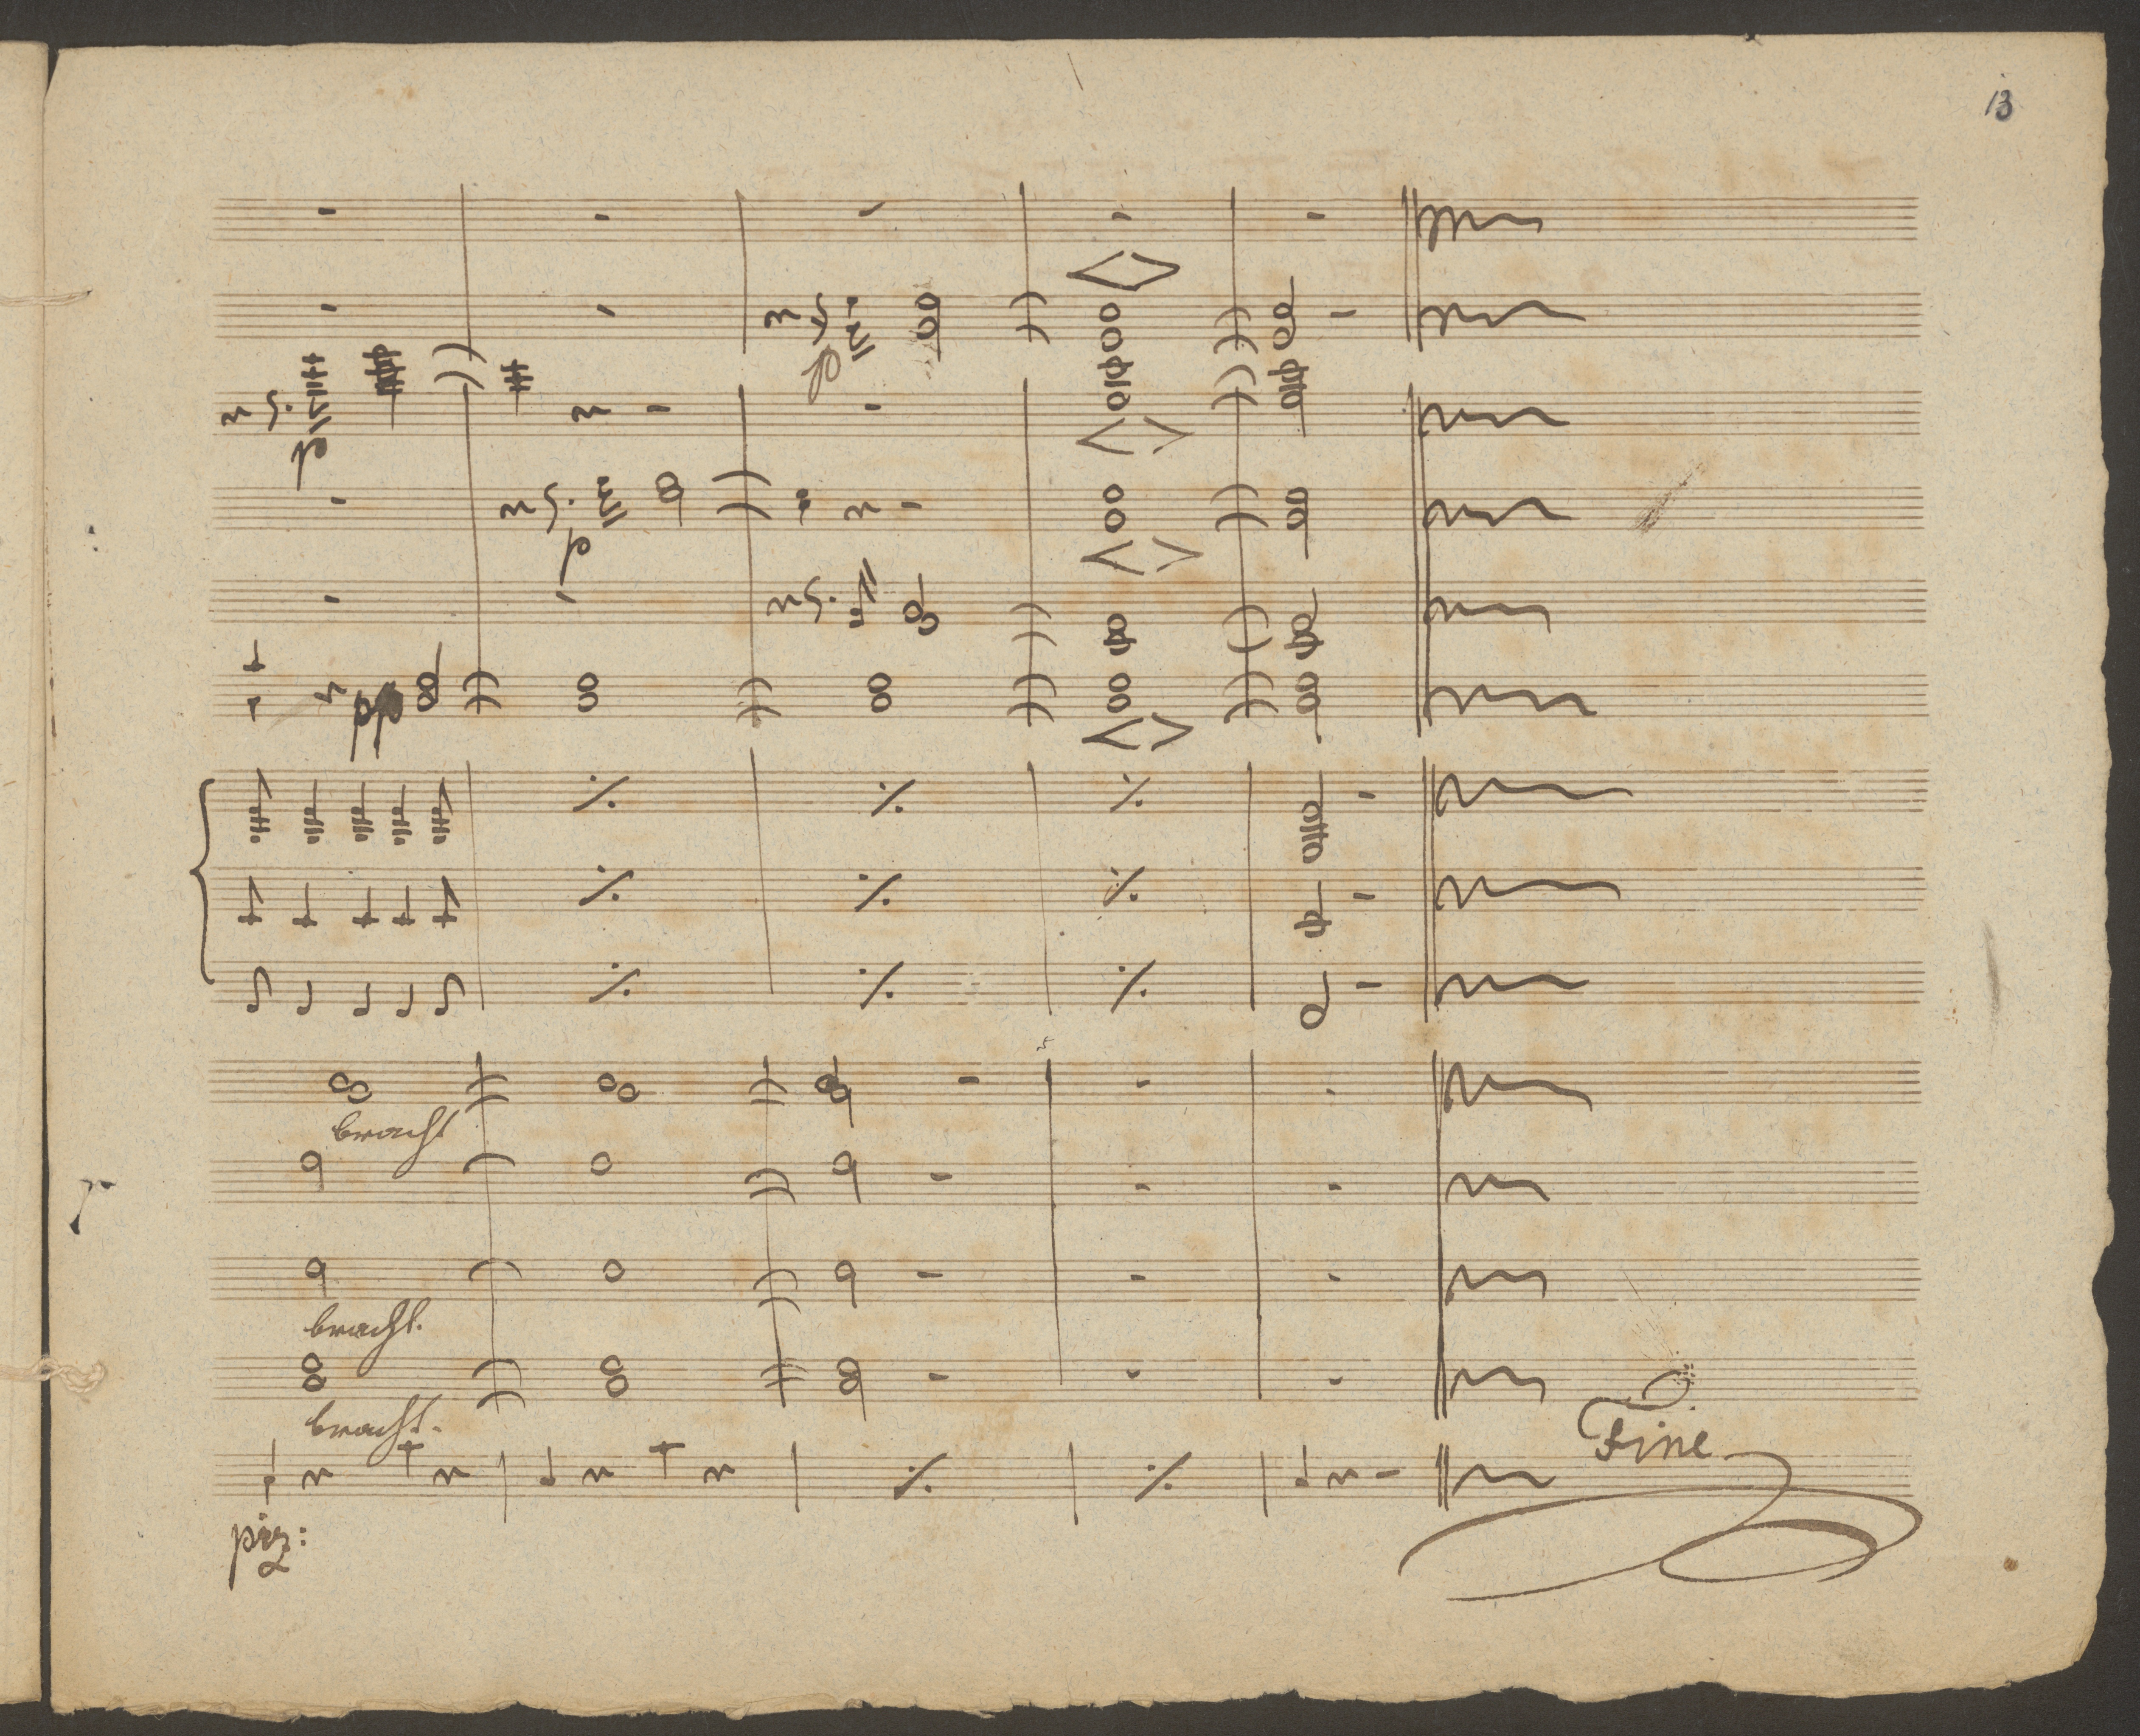 13
p
p
p
pp
bracht
bracht.
bracht.
Fine
piz: